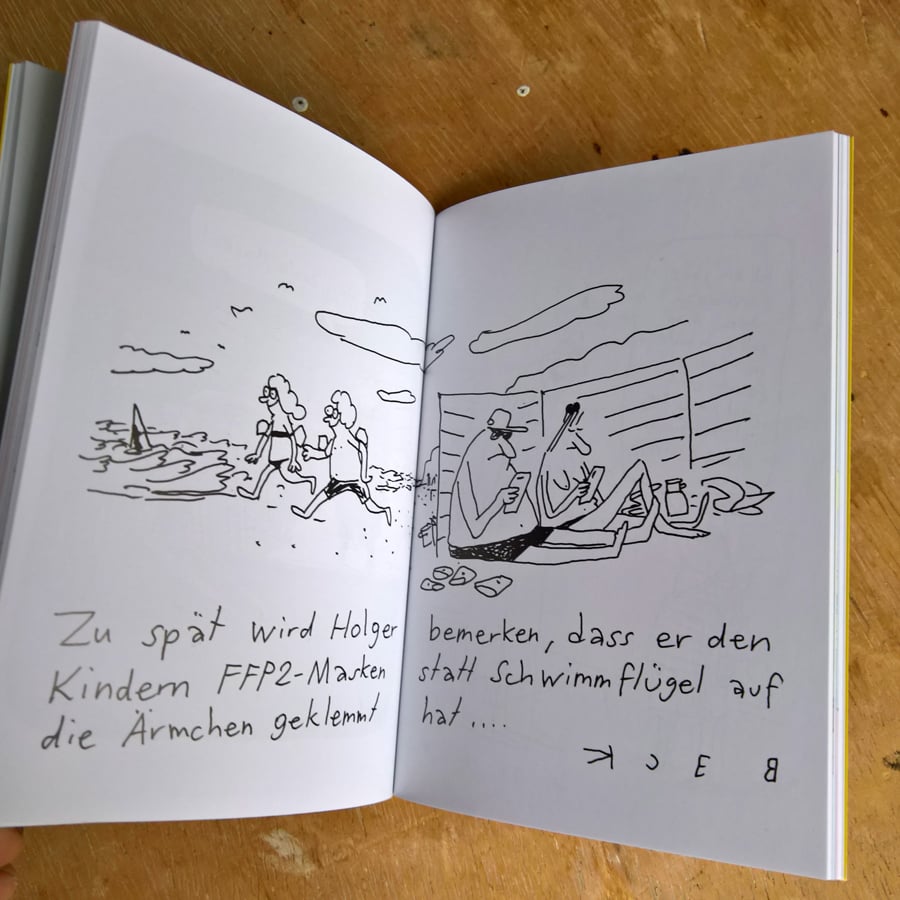 Zu spät wird Holger bemerken, dass er den
Kindern FFP2-Masken statt Schwimmflügel auf
die Ärmchen geklemmt hat....
BECK